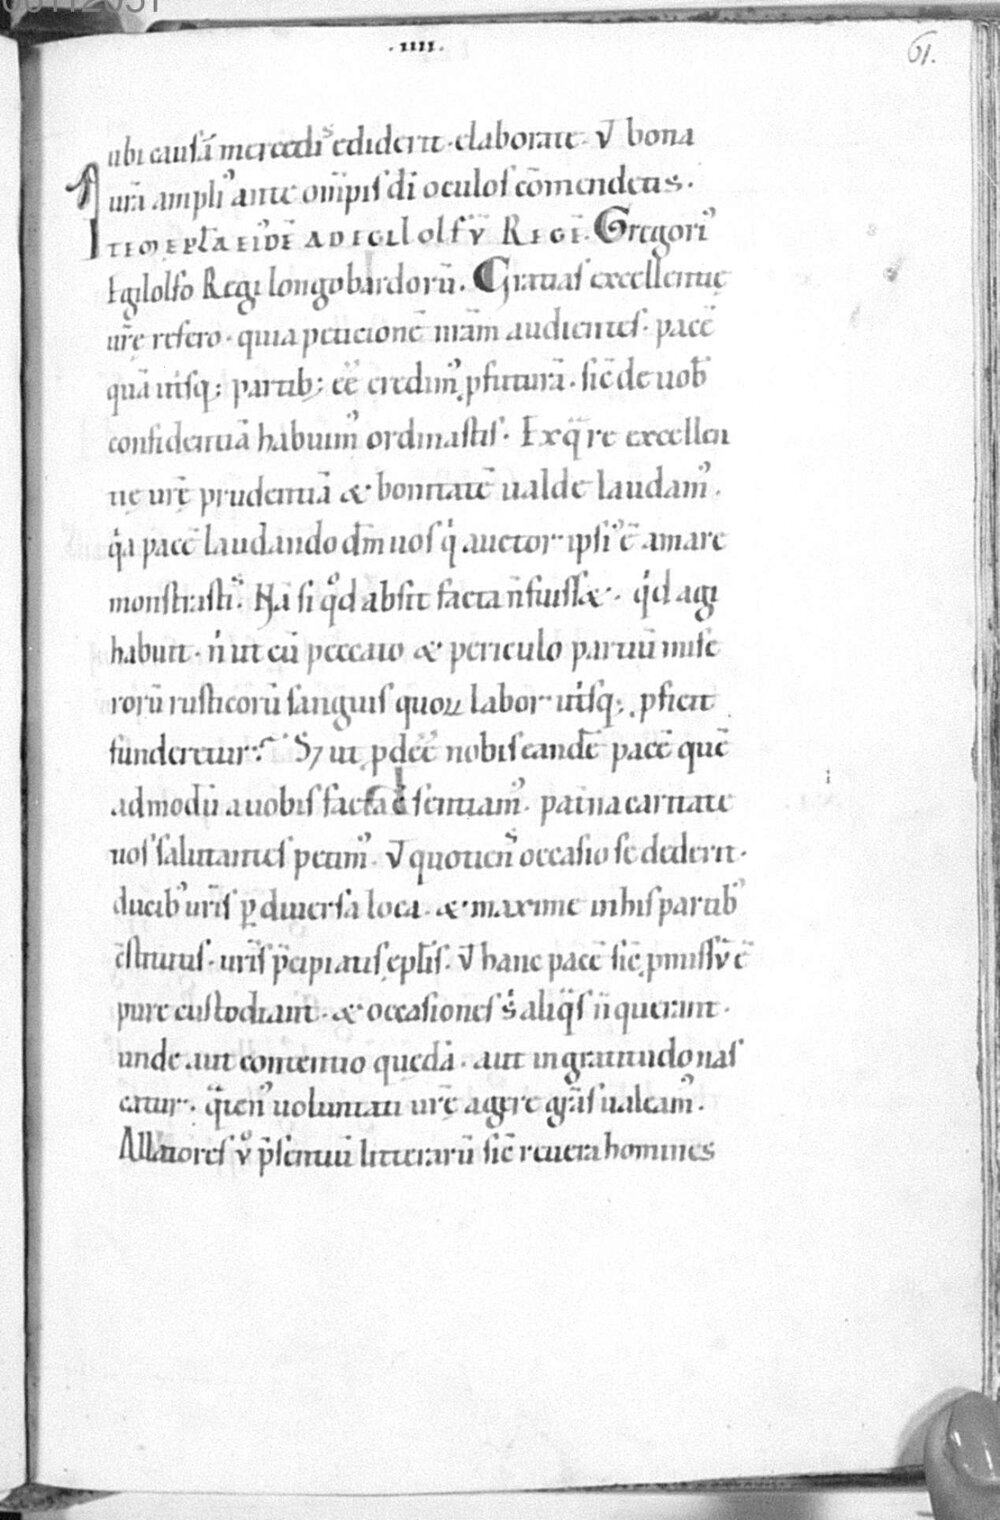 .IIII.
61.
ubi causā mercedis ediderit. elaborate. V̄ bona
urā ampli᾽ ante om̄ipis dī oculos cōmendetis.
ITEM EPLA EIVDĒ AD EGILOLFV̄ REGĒ. Gregori᾽
Egilolfo Regi longobardorū. Gratias excellentię
ur̄ę refero. quia peticionē nr̄am audientes. pacē
quā utrisq; partib; eē credim᾽ pfuturā. sic̄ de uob̄
confidentiā habuim᾽ ordinastis. Ex q̄ re excellen
tię ur̄ę prudentiā & bonitatē ualde laudam᾽.
qa pacē laudando dm̄ uos q auctor ipsi᾽ ē amare
monstrastis. Nā si qd absit facta n̄ fuiss&. qd agi
habuit. n ut cū peccato & periculo partiū mise
rorū rusticorū sanguis quoꝝ labor utrisq; pficit
funderetur? S; ut pdeē nobis eandē pacē quē
admodū a uobis facta ē sentiam᾽. patna caritate
uos salutantes petim᾽. V̄ quotiens occasio se dederit.
ducib᾽ ur̄is p diuersa loca. & maxime in his partib᾽
cstitutis. ur̄is p̄cipiatis eplis. V̄ hanc pacē sic̄ pmissū ē
pure custodiant. & occasiones s aliqs n̄ querant.
unde aut contentio quedā. aut ingratitudo nas
catur. q̄ten᾽ uoluntati ur̄ę agere grās ualeam᾽.
Allatores v p̄sentiū litterarū sic̄ reuera homines